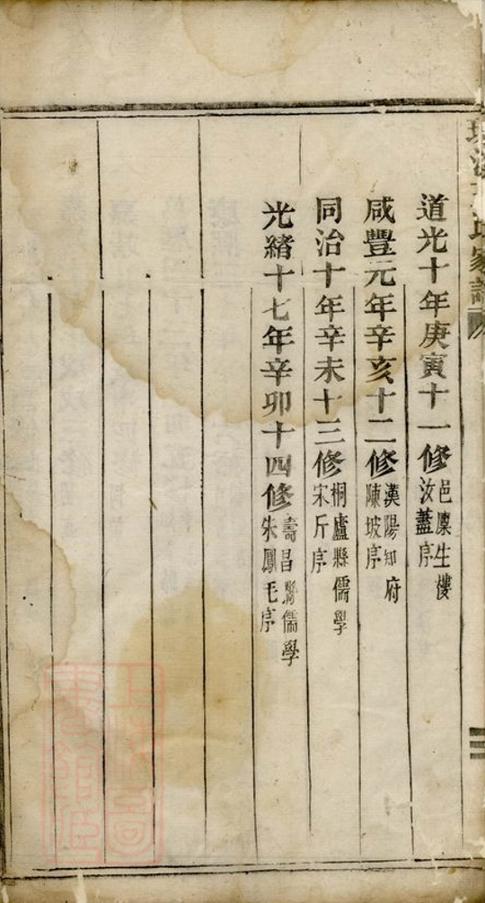 道光十年庚寅十一修邑廩生樓汝蓋序
咸豐元年辛亥十二修漢陽知府陳坡序
同治十年辛未十三修桐廬縣儒學宋斤序
光緒十七年辛卯十四修壽昌縣儒學朱鳳毛序
氏家譜